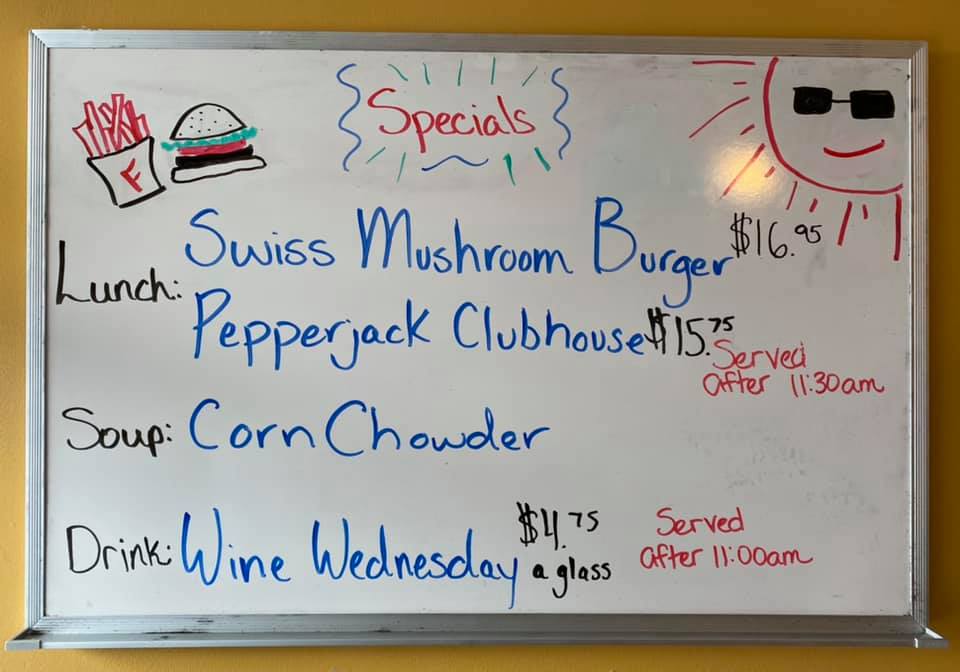 Specials
F
Swiss Mushroom Burger $16.95
Lunch:
Pepperjack Clubhouse $15.75
Served
after 11:30am
Soup: Corn Chowder
Drink: Wine Wednesday $4.75
a glass
Served
after 11:00am